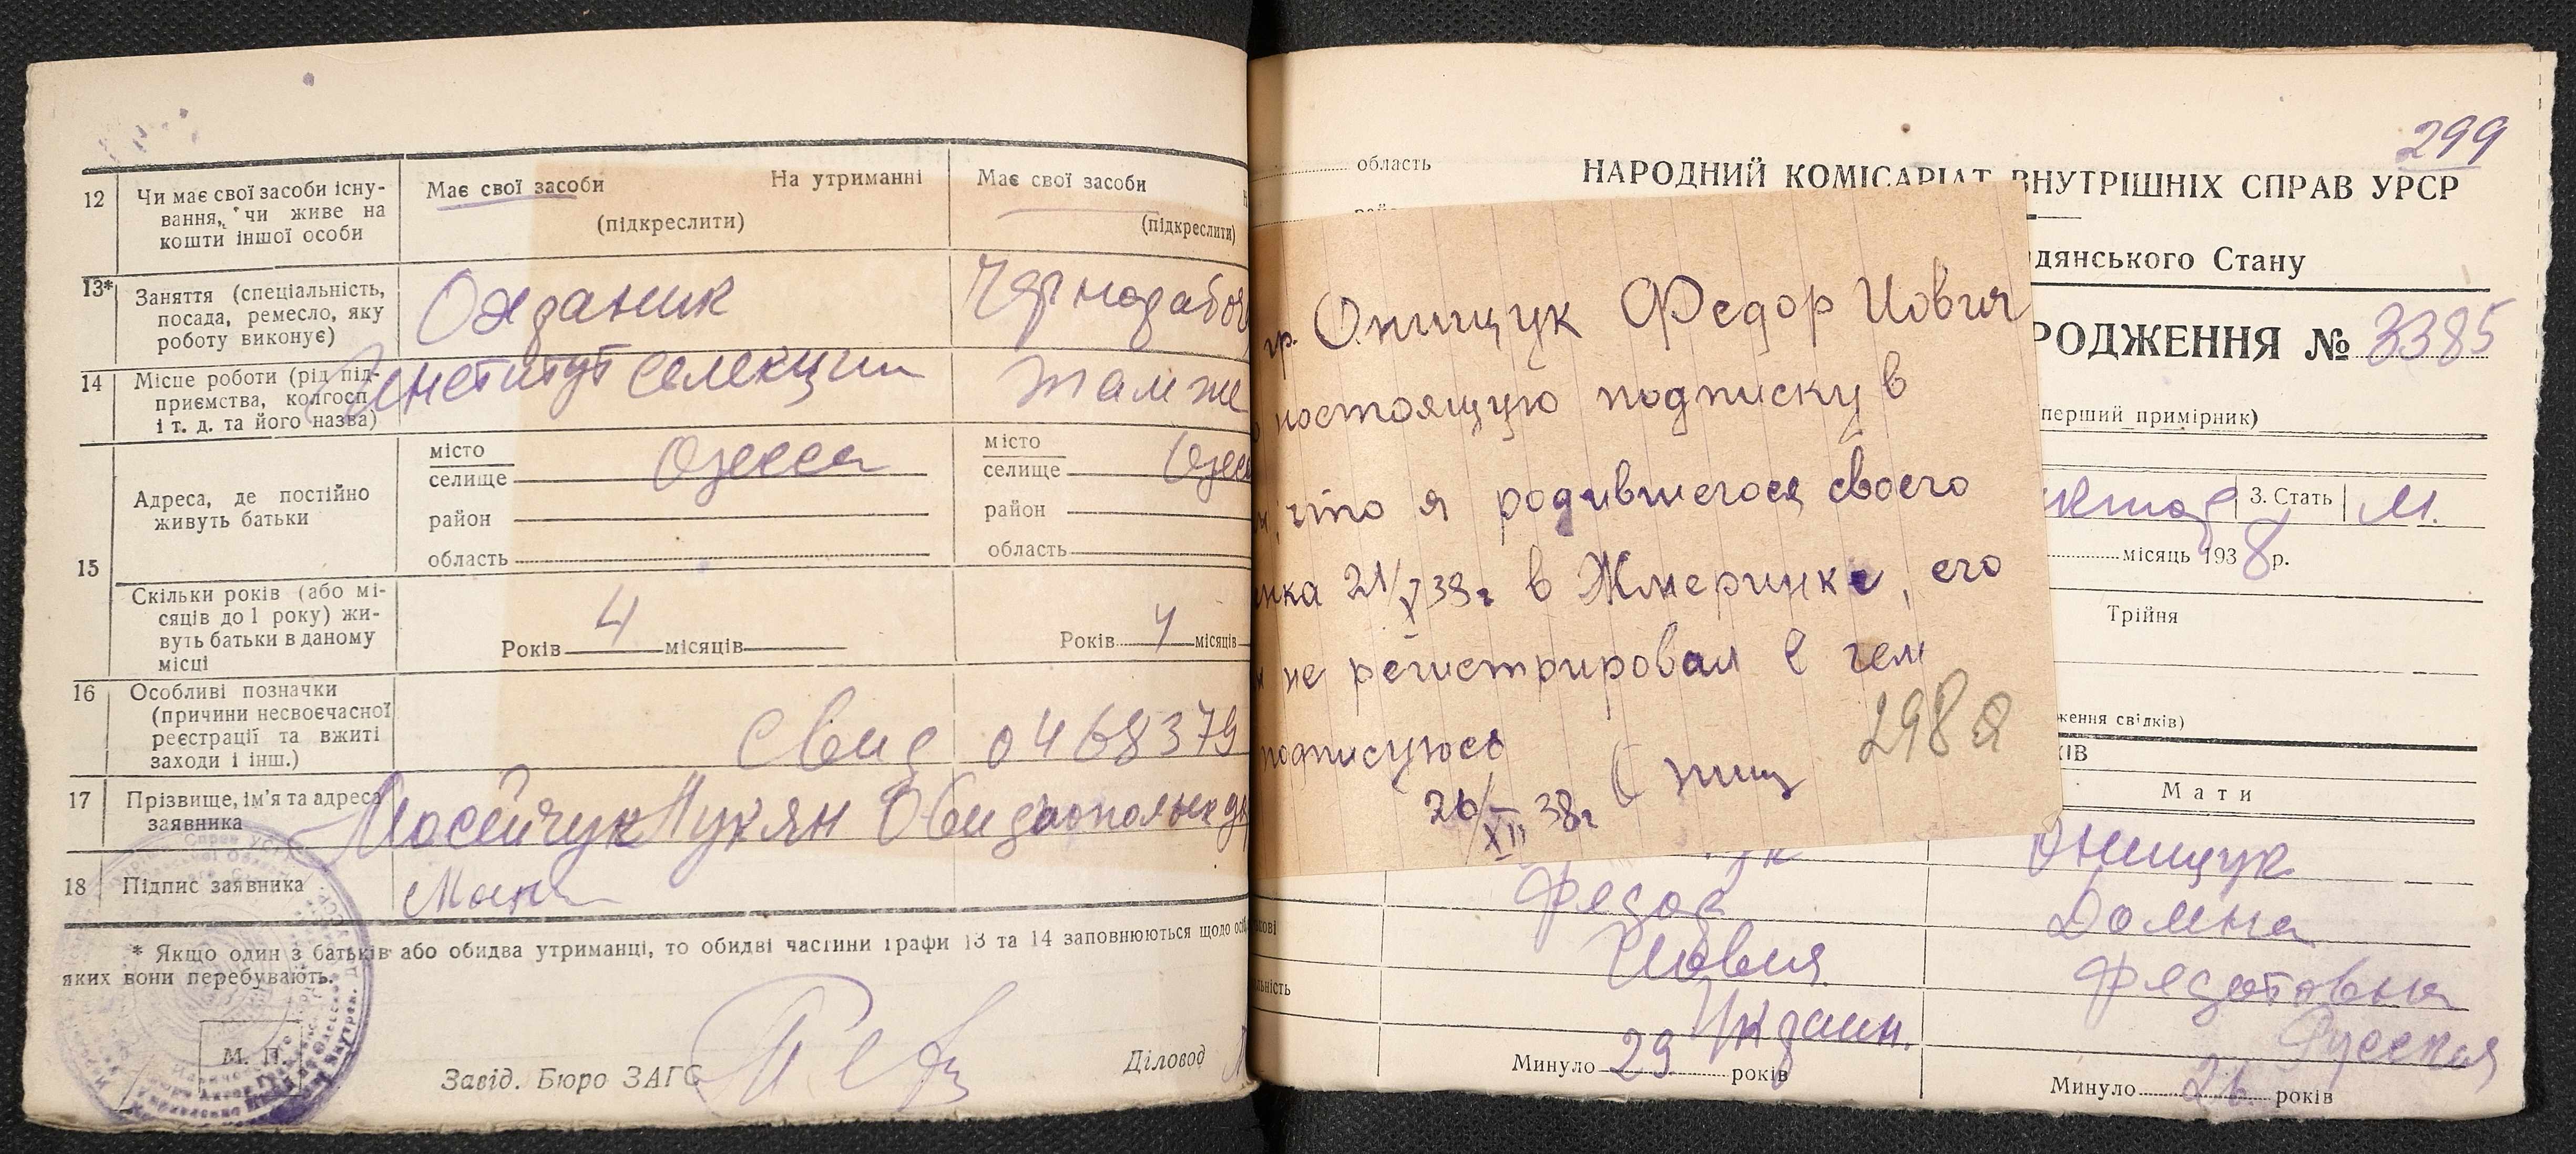 12 Чи має свої засоби існу-
вання, чи живе на
кошти іншої особи
Має свої засоби На утриманні
(підкреслити)
Має свої засоби
(підкреслити)
13* Заняття (спеціальність,
посада, ремесло, яку
роботу виконує)
Охраник
Чернорабоч
14 Місце роботи (рід під-
приємства, колгосп
і т. д. та його назва)
Институт селекции
там же
15 Адреса, де постійно
живуть батьки
місто
селище Одесса
район
область
місто
селище Одесс
район
область
Скільки років (або мі-
сяців до 1 року) жи-
вуть батьки в даному
місці
Років 4 місяців
Років 4 місяців
16 Особливі позначки
(причини несвоєчасної
реєстрації та вжиті
заходи і інш.)
Свид 0468379
17 Прізвище, ім'я та адреса
заявника
Мосейчук Лукян Овидиопольск
18 Підпис заявника
* Якщо один з батьків або обидва утриманці, то обидві частини графи 13 та 14 заповнюються щодо осіб
яких вони перебувають.
М. П.
Завід. Бюро ЗАГС
Діловод
299
область
НАРОДНИЙ КОМІСАРІАТ ВНУТРІШНІХ СПРАВ УРСР
дянського Стану
РОДЖЕННЯ № 3385
перший примірник)
3. Стать М.
місяць 1938 р.
Трійня
ження свілків)
ІКІВ
Мати
гр. Онищук Федор Иович
настоящую подписку в
что я родившегося своего
нка 21/V 38г в Жмеринке, его
не регистрировал в чем
подписуюсь
Онищ
298а
26/XII 38г
Онищук
Фядор
Домна
Иович
Фядотовна
Украин.
Русская
Минуло 29 років
Минуло 26 років